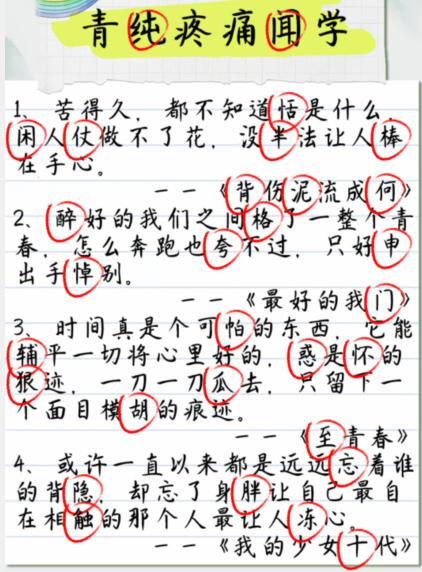 青纯疼痛闻学
1、苦得久，都不知道恬是什么，
闲人仗做不了花，没半法让人棒
在手心。
——《背伤泥流成何》
2、醉好的我们之间格了一整个青
春，怎么奔跑也夸不过，只好申
出手悼别。
——《最好的我门》
3、时间真是个可怕的东西，它能
辅平一切将心里好的，惑是怀的
狠迹，一刀一刀瓜去，只留下一
个面目模胡的痕迹。
——《至青春》
4、或许一直以来都是远远忘着谁
的背隐，却忘了身胖让自己最自
在相触的那个人最让人冻心。
——《我的少女十代》